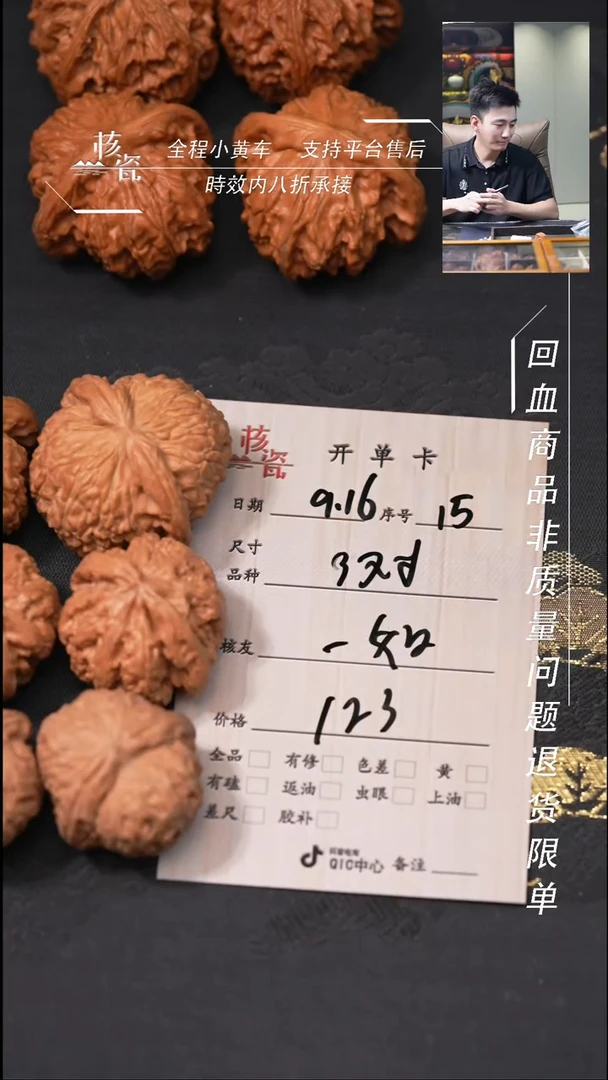 核瓷
全程小黄车 支持平台售后
時效内八折承接
回血商品非质量问题退货限单
核瓷 开单卡
日期 9.16 序号 15
尺寸
品种 3对
核友 一知
价格 123
全品 有修 色差 黄
有磕 返油 虫眼 上油
差尺 胶补
抖音电商
QIC中心 备注